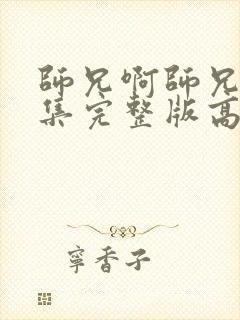 師兄啊師兄
集完整版高
寧香子